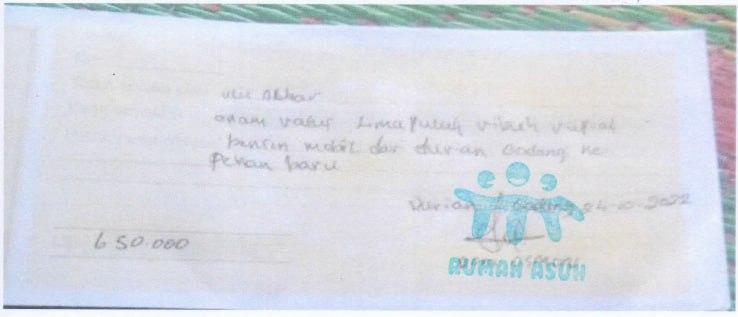 ulil Akbar
anam ratus Lima Puluh ribuh rupiah
bensin mobil dari durian Gadang ke
Pekan baru
Durian Gadang 24-10-2022
650.000
RUMAH ASUH